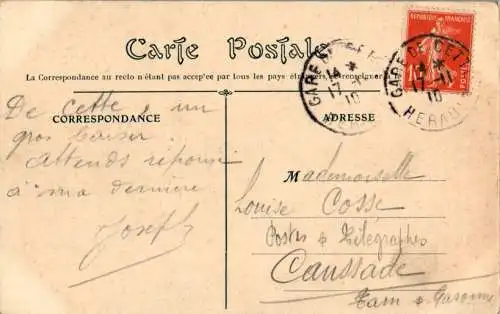 Carte Postale
La Correspondance au recto n'étant pas acceptée par tous les pays étrangers
REPUBLIQUE FRANÇAISE
10
POSTES
GARE DE CETTE
17-1
10
HERAULT
CORRESPONDANCE
ADRESSE
De Cette, un
gros baiser.
Attends réponse
à ma dernière
Joseph
Mademoiselle
Louise Cosse
Postes & Télégraphes
Caussade
Tarn & Garonne